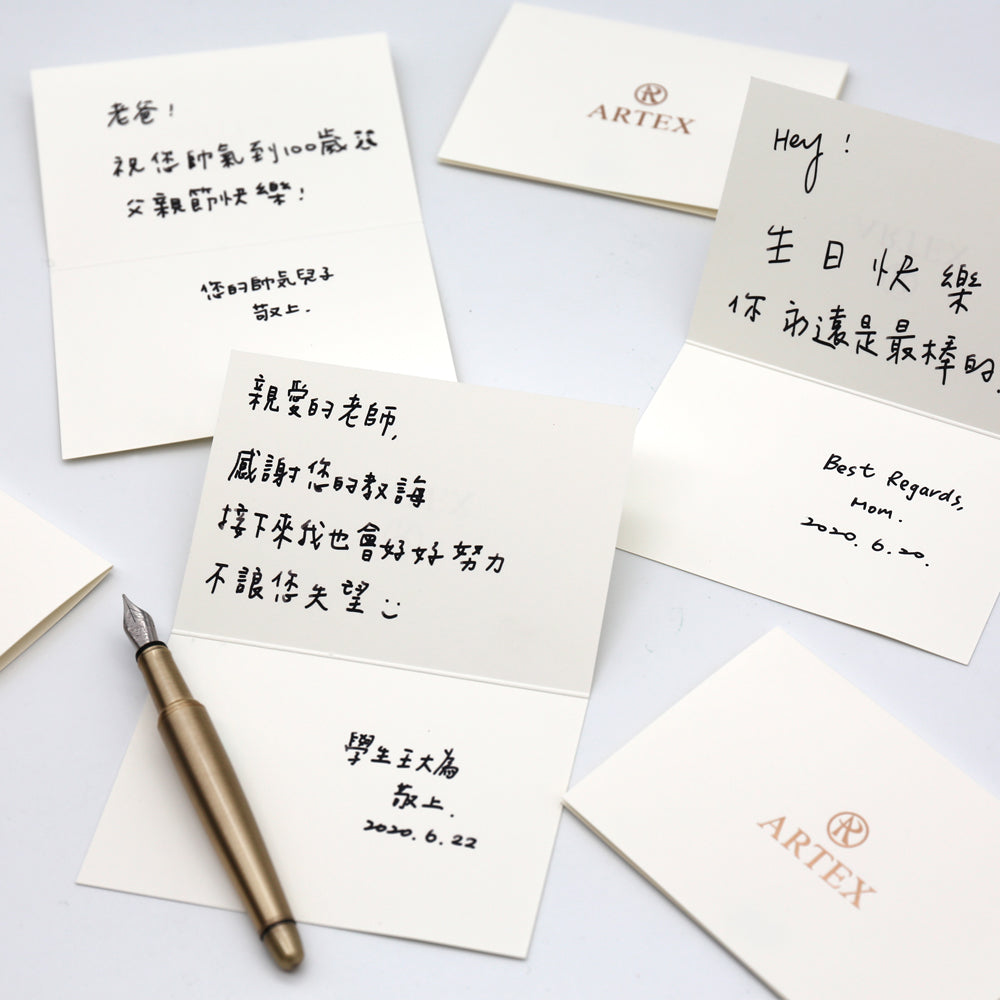 老爸!
祝您帥氣到100歲
父親節快樂!
您的帥氣兒子
敬上.
ARTEX
Hey!
生日快樂
你永遠是最棒的.
Best Regards,
Mom.
2020.6.20.
親愛的老師,
感謝您的教誨
接下來我也會好好努力
不讓您失望
學生王大為
敬上.
2020.6.22
ARTEX